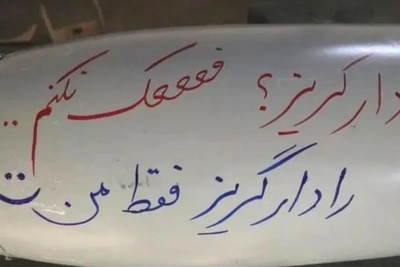 دارگریز؟ فففففک نکنم ..
رادارگریز فقط من